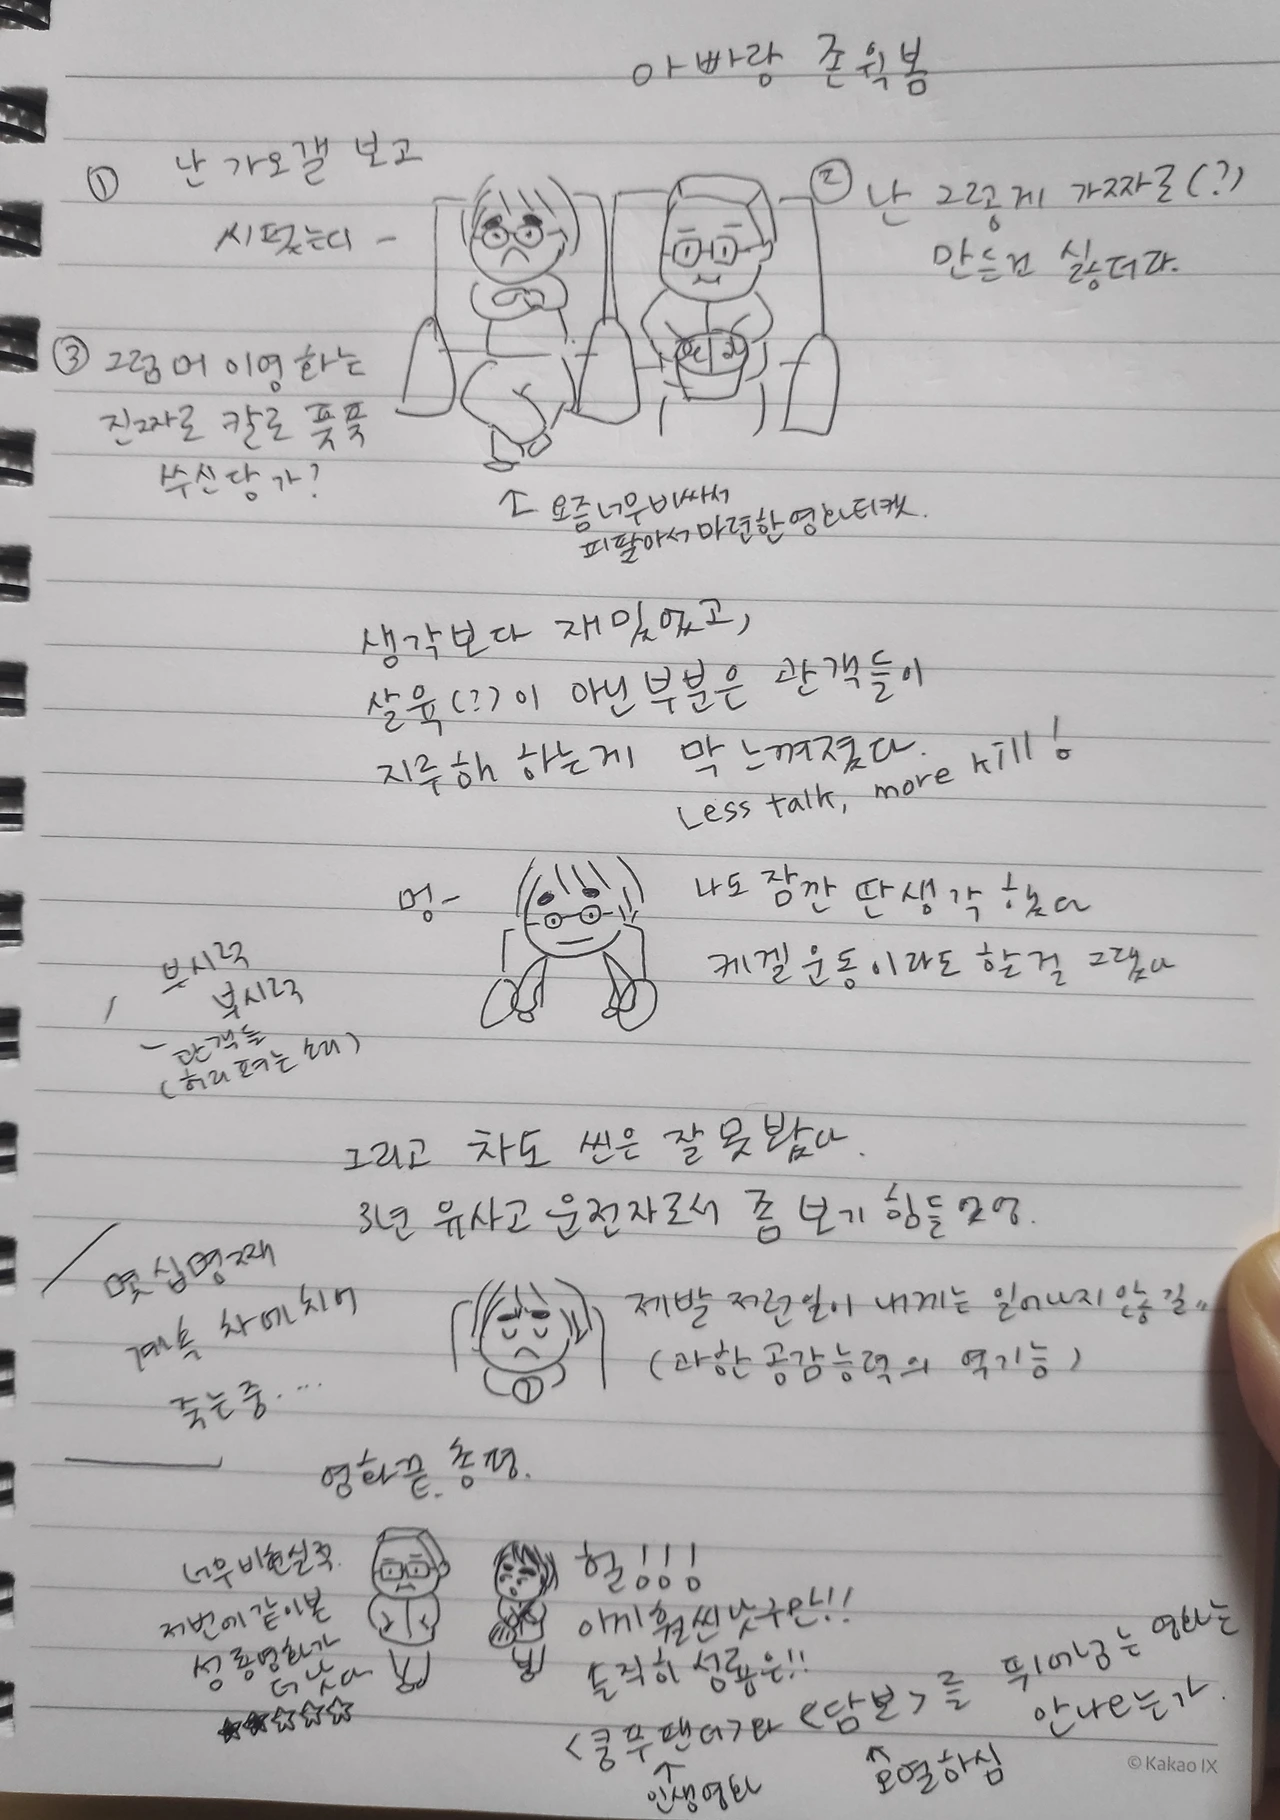 아빠랑 존윅봄
① 난 가오갤 보고
시펐는디 ~
② 난 그렇게 가짜로(?)
만든건 싫더라.
③ 그럼 머 이영화는
진짜로 칼로 푹푹
쑤신당가?
↑ 요즘 너무 비싸서
피팔아서 마련한 영화티켓.
생각보다 재밌었고,
살육(?)이 아닌 부분은 관객들이
지루해 하는게 막 느껴졌다.
Less talk, more kill!
멍~
나도 잠깐 딴생각 했다
케겔운동이라도 할걸 그랬다
부시럭
부시럭
관객들
(허리 펴는 소리)
그리고 차도 씬은 잘 못 봤다.
3년 유사고 운전자로서 좀 보기 힘들었엉.
몇십명째
계속 차에 치여
죽는중....
제발 저런일이 내게는 일어나지 않길..
(과한 공감능력의 역기능)
영화끝. 총평.
너무비현실적.
저번에 같이본
성룡영화가
더 낫다
★★☆☆☆
헐!!!
아까 훨씬낫구만!!
솔직히 성룡은!!
<쿵푸팬더>랑 <담보>를 뛰어넘는 영화는
안나오는가.
↑
인생영화
↑
오열하심
© Kakao IX